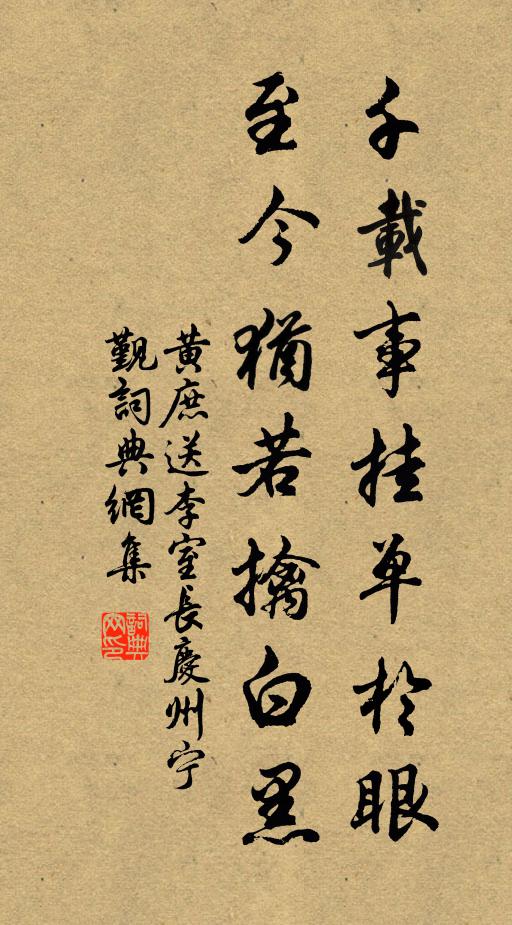 千載事挂单於眼
至今猶若擒白黑
黃庶送李室長慶州宁
觐詞典網集
詞典网印